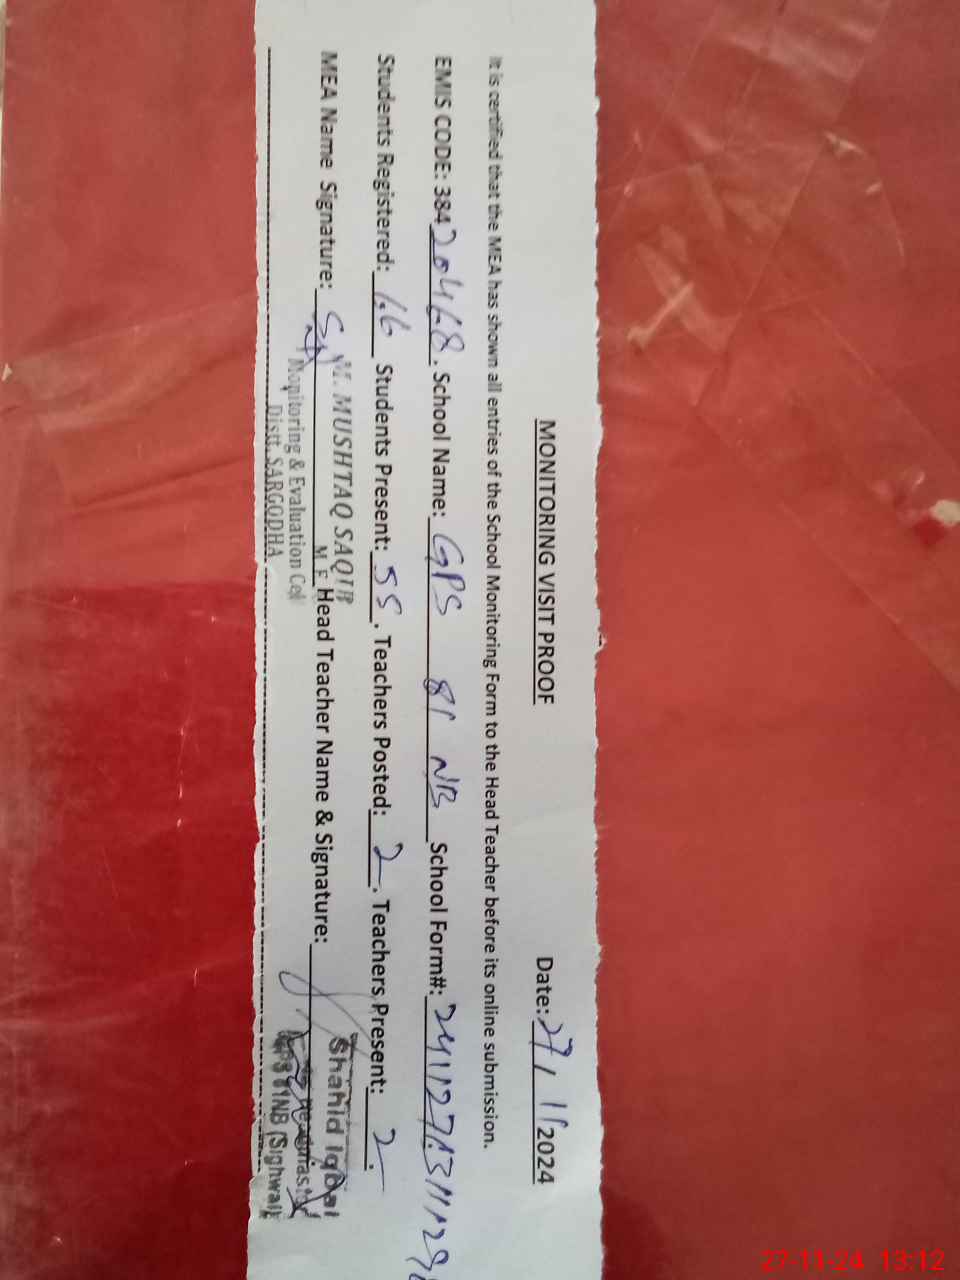 MONITORING VISIT PROOF Date: 27/11/2024
It is certified that the MEA has shown all entries of the School Monitoring Form to the Head Teacher before its online submission.
EMIS CODE: 38420468. School Name: GPS 81 NB School Form#:
Students Registered: Students Present: 55. Teachers Posted: 2. Teachers Present: 2.
MEA Name Signature: Head Teacher Name & Signature:
M. MUSHTAQ SAQIB
M E
Monitoring & Evaluation Cell
Distt. SARGODHA
Shahid Iqbal
(Sighwali
27-11-24 13:12